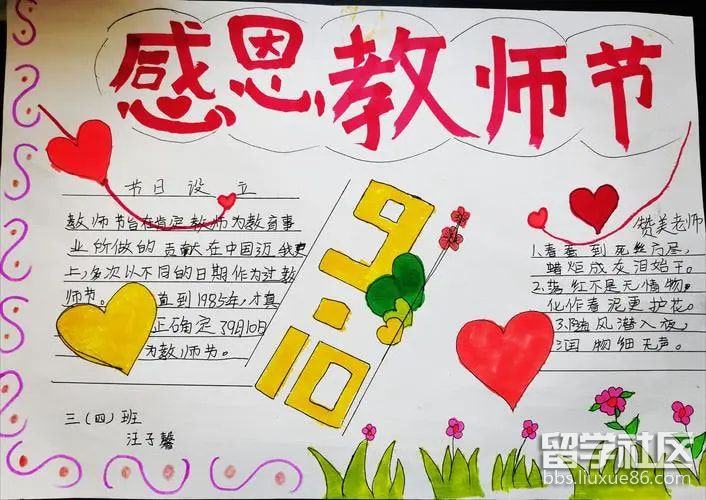 感恩教师节
节日设立
教师节旨在肯定教师为教育事
业所做的贡献在中国近
上,多次以不同的日期作为过教
师节。直到1985年,才真
正确定39月10日
为教师节。
三(四)班
汪子馨
9.10
赞美老师
1.春蚕到死丝方尽,
蜡炬成灰泪始干。
2.落红不是无情物,
化作春泥更护花。
3.随风潜入夜,
润物细无声。
留学社区
bbs.liuxue86.com